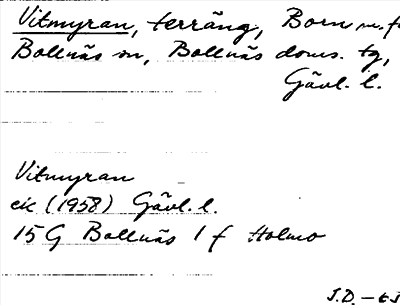 Vitmyran, terräng, Born m. fl.
Bollnäs sn, Bollnäs doms. tg,
Gävl. l.
Vitmyran
ek (1958) Gävl. l.
15G Bollnäs 1 f Holmo
J.D. - 63